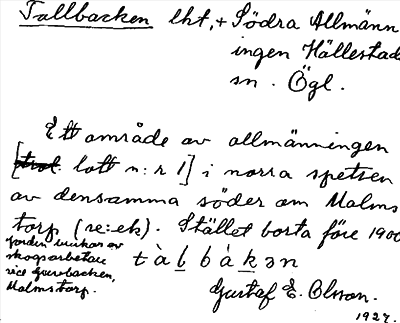 Tallbacken lht, + Södra Allmänn
ingen Hällestad
sn. Ögl.
Ett område av allmänningen
[trol. lott n:r 1] i norra spetsen
av densamma söder om Malms
torp (re:ek). Stället borta före 1900
Jorden brukar av
skogsarbetare
vice Gjersbacken,
Malmstorp.
tàl̲bàk̲ən
Gustaf E. Olsson.
1927.